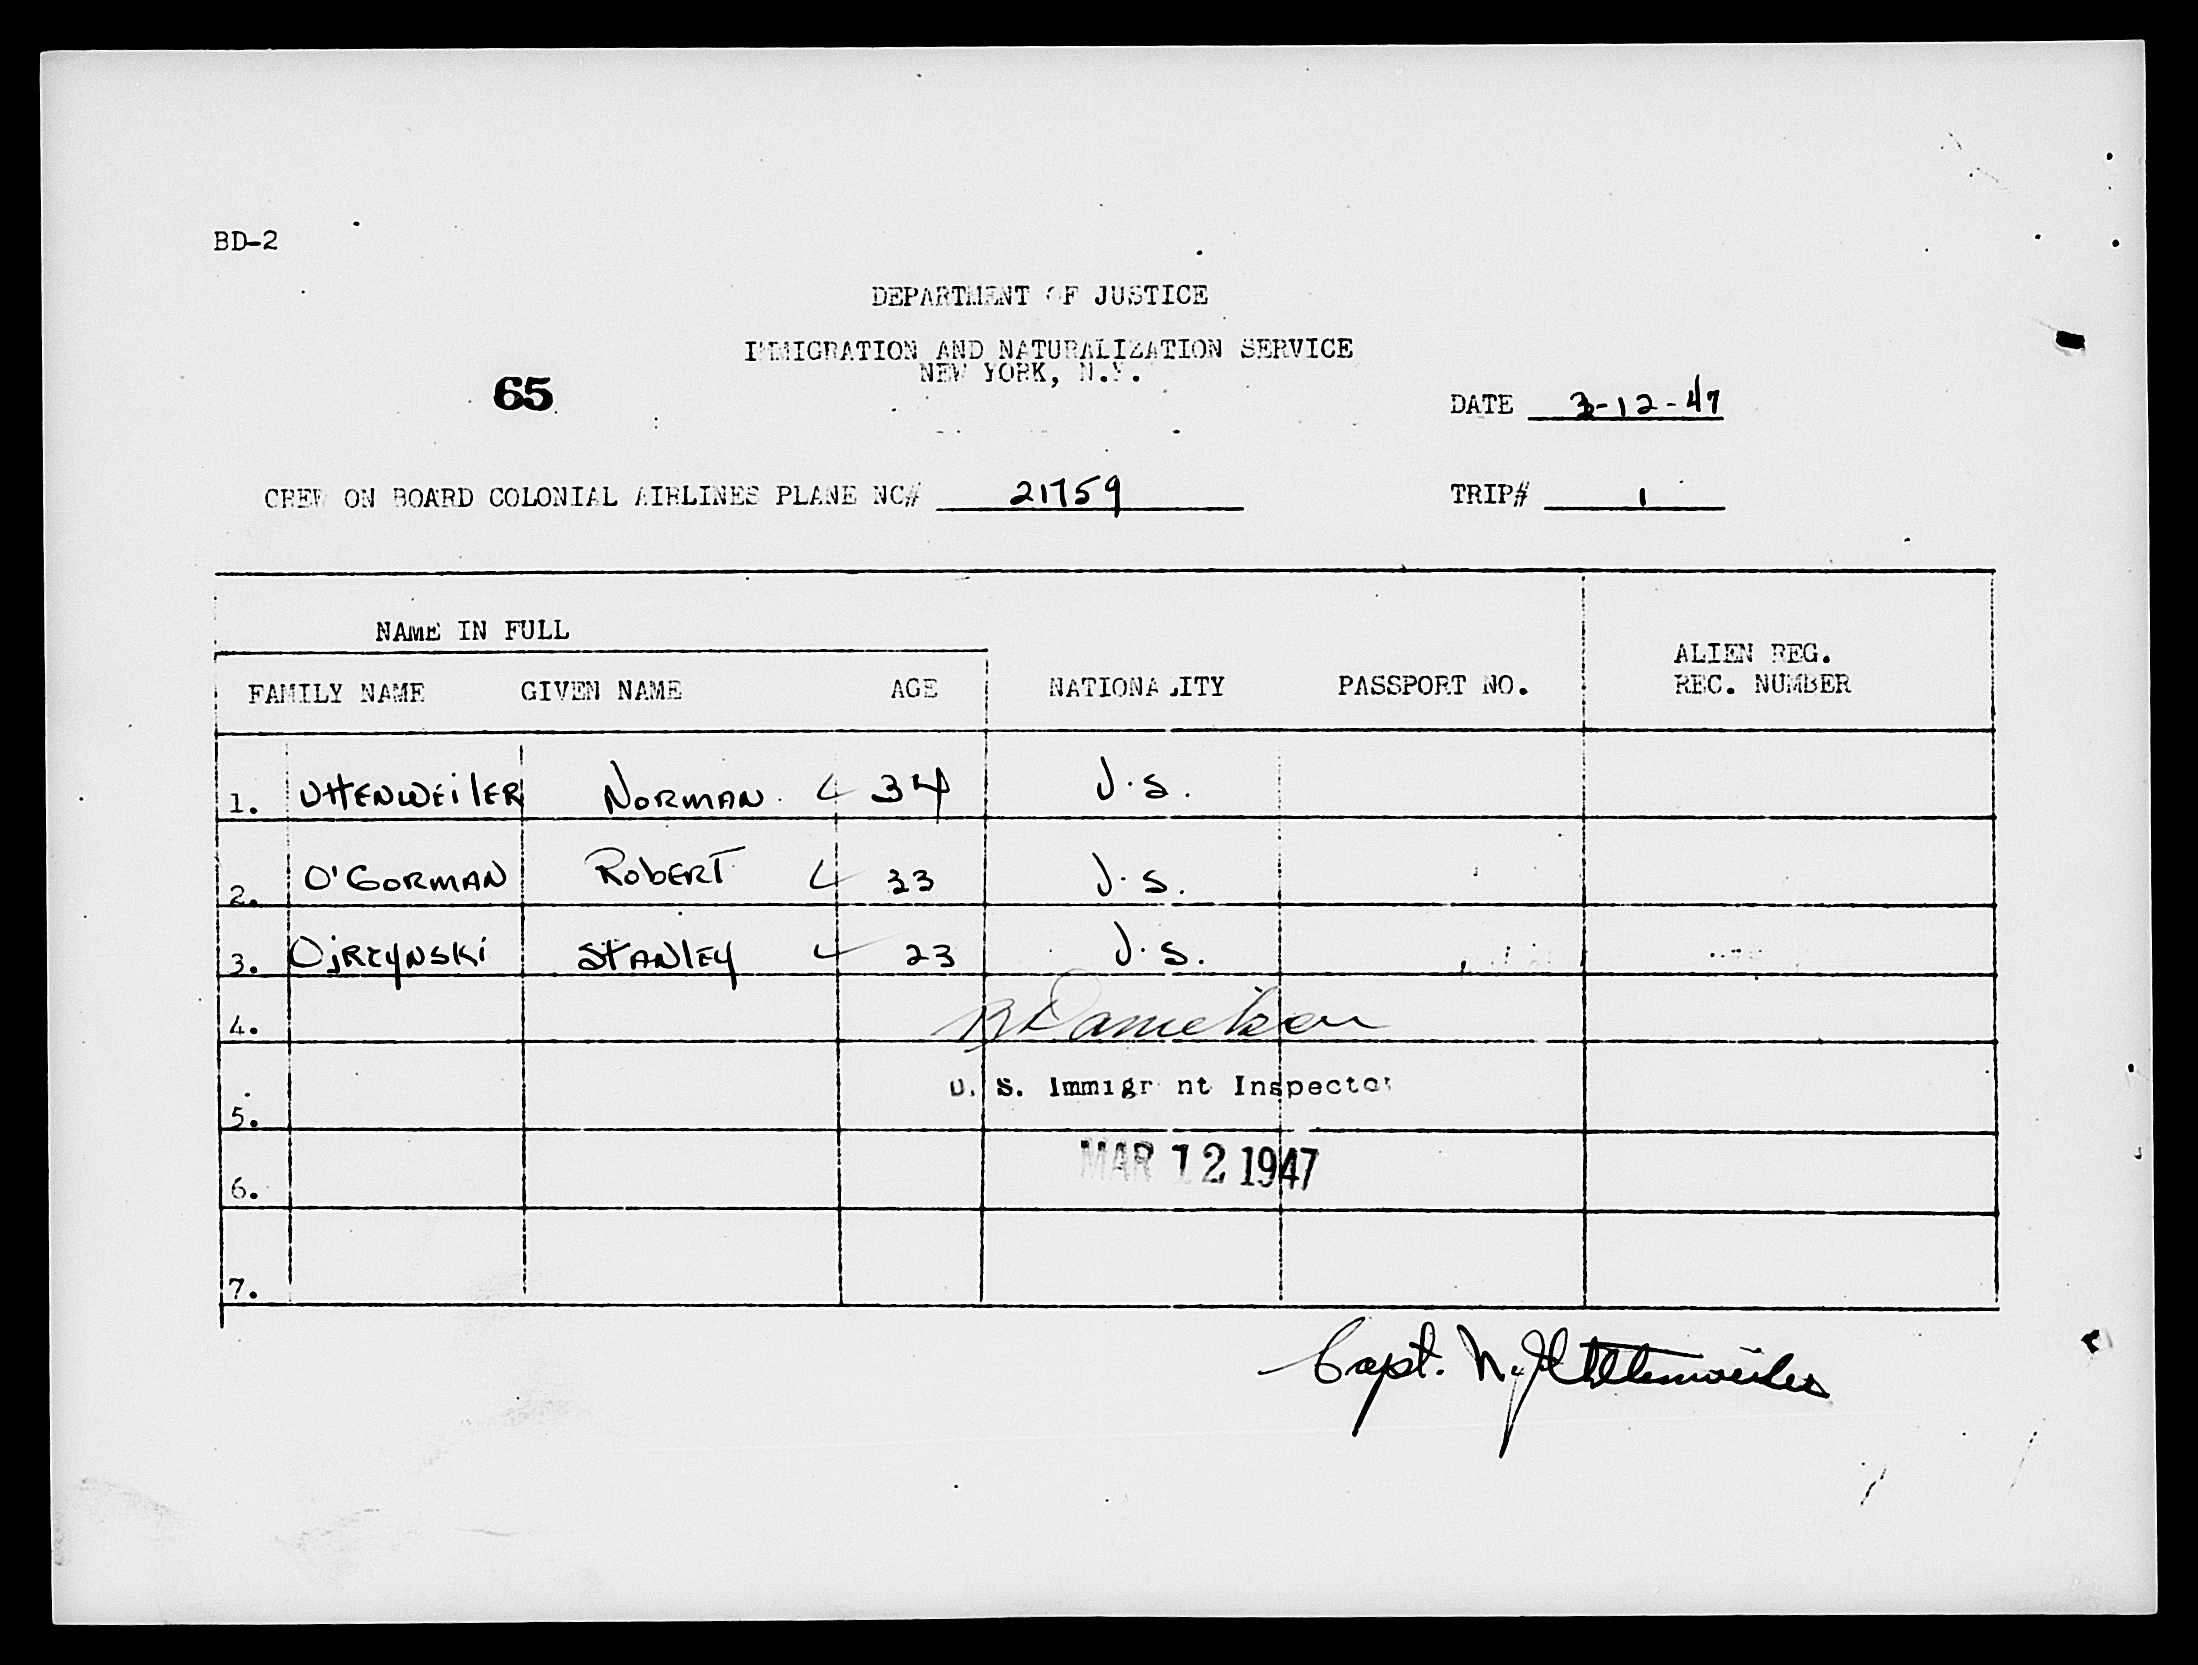 BD-2
DEPARTMENT OF JUSTICE
IMMIGRATION AND NATURALIZATION SERVICE
NEW YORK, N.Y.
65
DATE 3-12-47
CREW ON BOARD COLONIAL AIRLINES PLANE NC# 21759 TRIP# 1
NAME IN FULL
ALIEN REG.
FAMILY NAME GIVEN NAME AGE NATIONALITY PASSPORT NO. REC. NUMBER
1. UttENWEilER NORMAN 34 U.S.
2. O'GORMAN RobERT 33 U.S.
3. OjRzyNSKi STANlEy 23 U.S.
4.
U. S. Immigrant Inspector
5.
MAR 12 1947
6.
7.
Capt. N. Uttenweiler